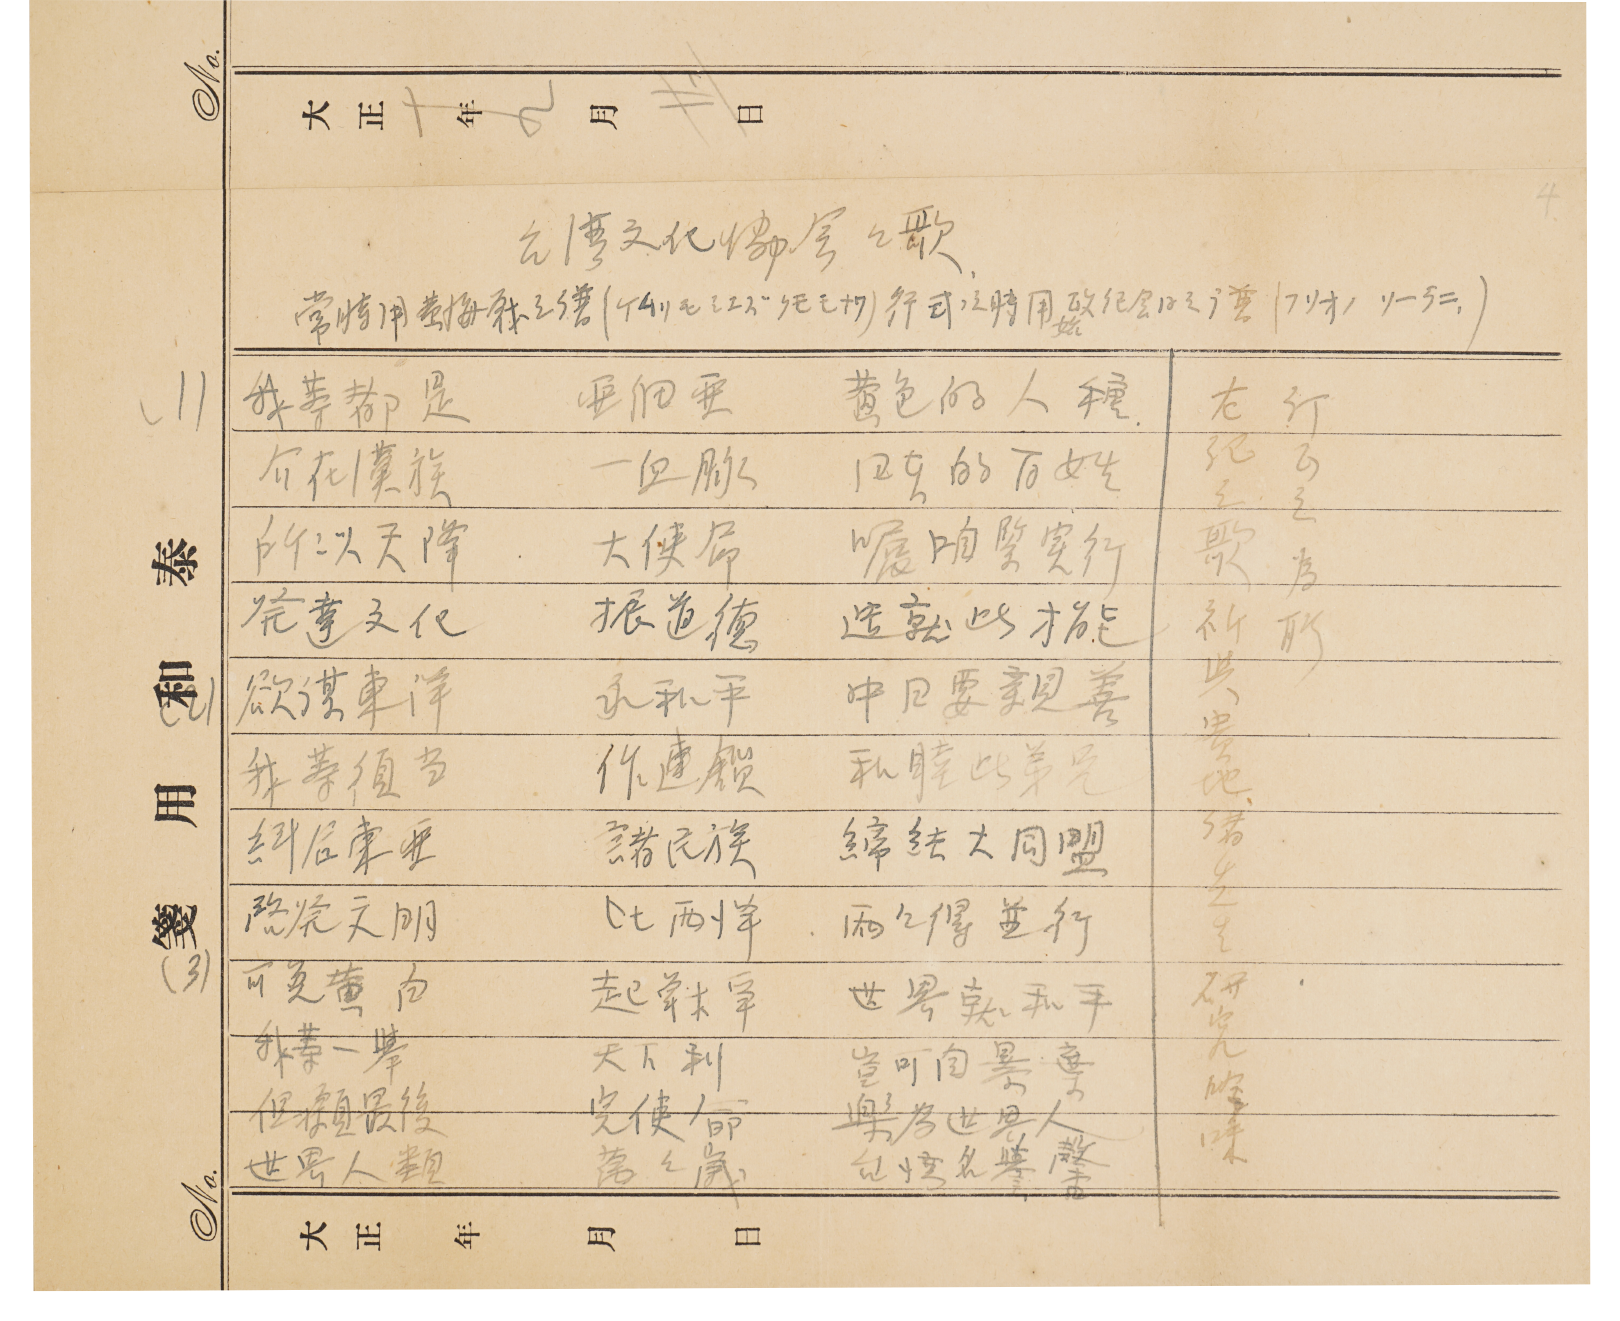 No.
大正十年 九月 廿 日
4
台灣文化協会之歌
常時用黃海戰之譜(ケムリモミエズクモモナク)行式之時用始政紀念日之譜(フリオノ ソーラニ)
(1) 我等都是 亞細亞 黃色的人種
介在漢族 一血脉 日本的百姓
所以天降 大使命 囑咱緊実行
発達文化 振道德 造就此才能
(2) 欲謀東洋 永和平 中日要親善
我等須当 作連鎖 和睦此弟兄
糾合東亞 諸民族 締結大同盟
啓発文明 比西洋 兩々得並行
(3) 可免黃白 起戰爭 世界就和平
我等一舉 天下利 豈可自暴棄
但願最後 完使命 樂為世界人
世界人類 萬々歲 台灣名譽馨
右記之歌祈與貴地諸先生研究吟味
行
泰和用箋
No.
大正 年 月 日